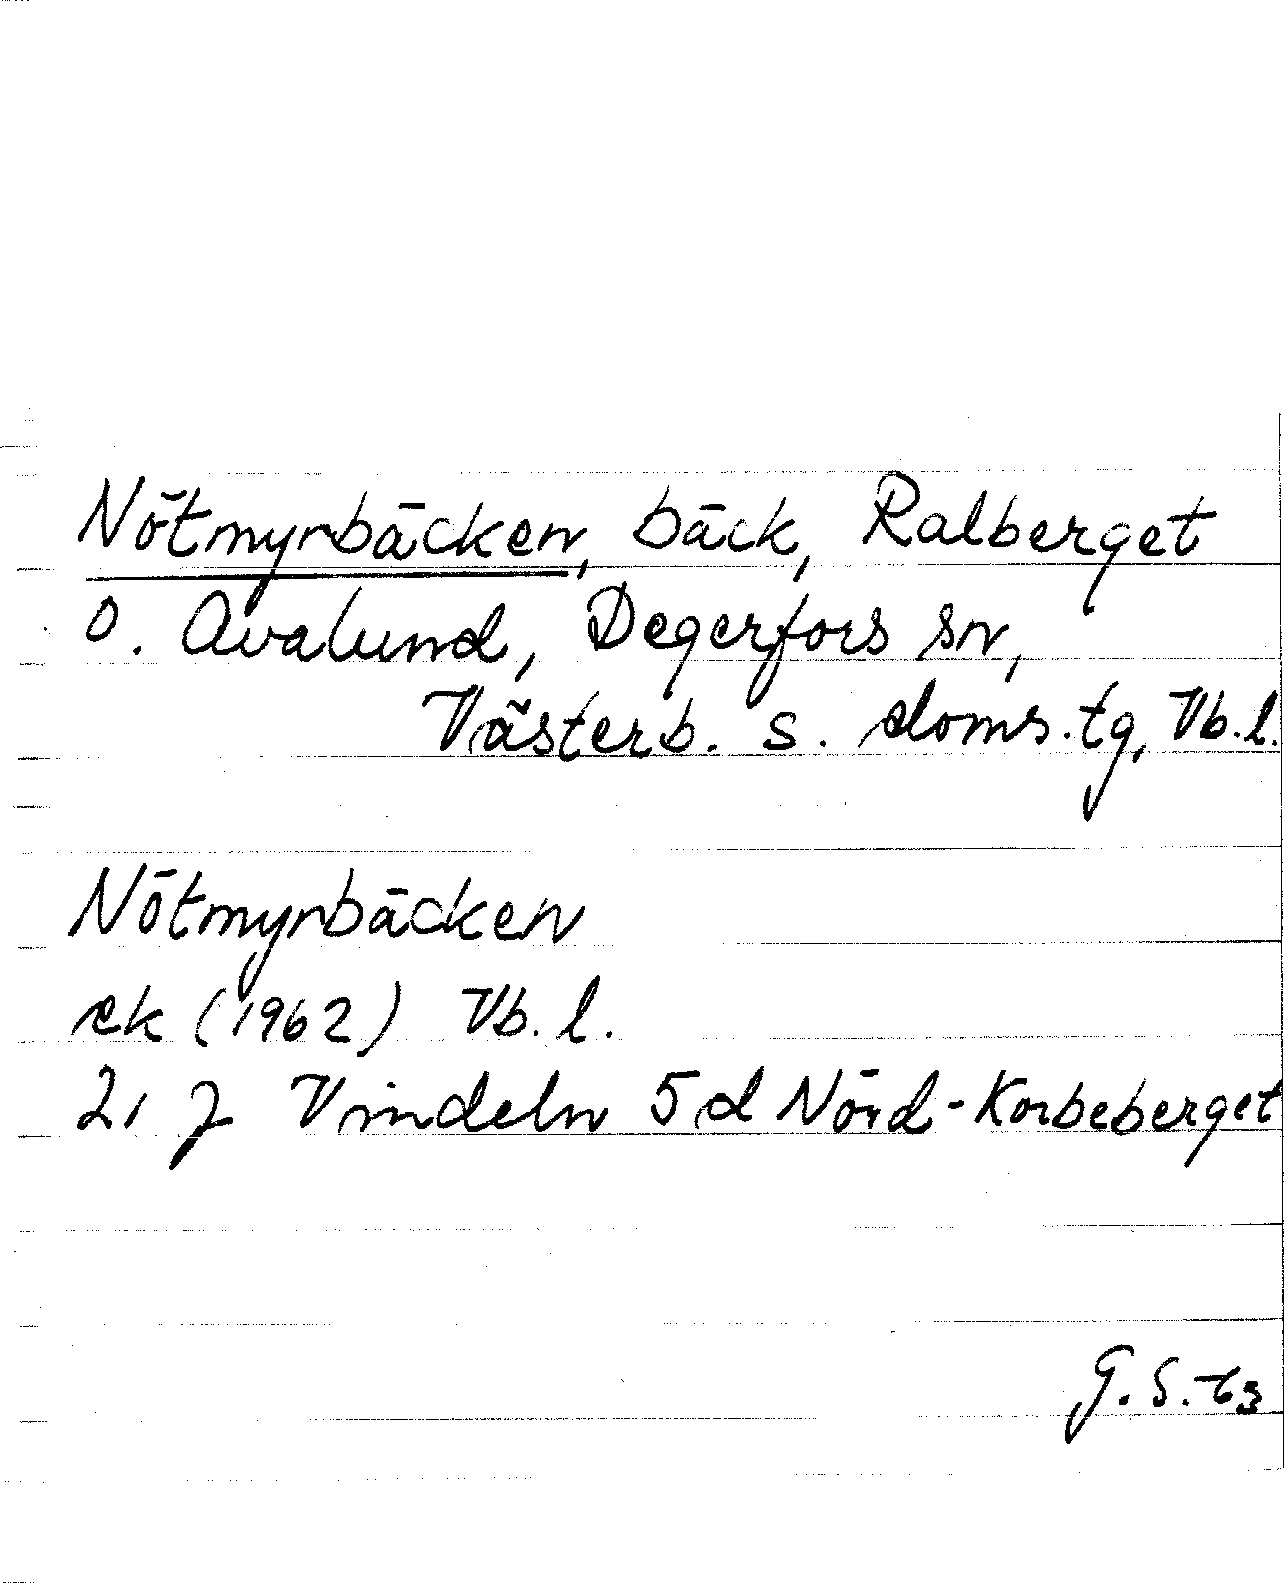 Nötmyrbäcken, bäck, Ralberget
o. Avalund, Degerfors sn,
Västerb. s. doms.tg, Vb.l.
Nötmyrbäcken
ek (1962) Vb. l.
21 J Vindeln 5d Nörd-Korbeberget
G.S.-63